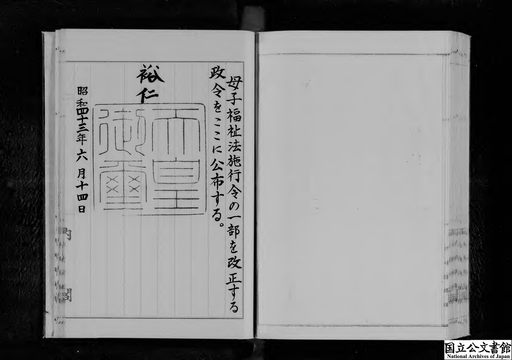 母子福祉法施行令の一部を改正する
政令をここに公布する。
裕仁
天皇
御璽
昭和四十三年六月十四日
内
閣
国立公文書館
National Archives of Japan